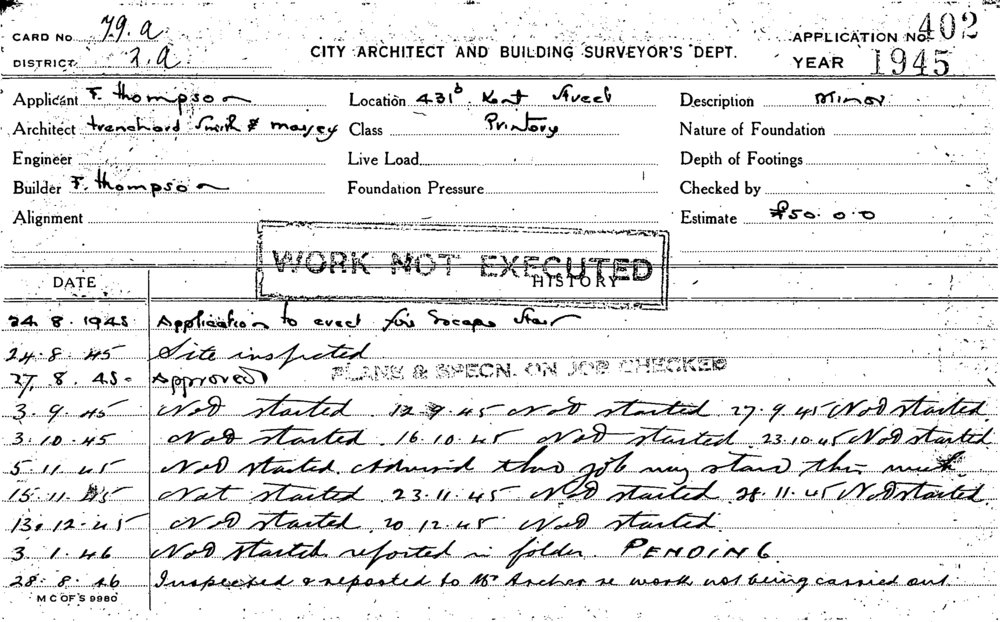 CARD No 79.a APPLICATION No 402
DISTRICT 2.a CITY ARCHITECT AND BUILDING SURVEYOR'S DEPT. YEAR 1945
Applicant F. Thompson Location 431b Kent Street Description Minor
Architect Trenchard Smith & Maisey Class Printory Nature of Foundation
Engineer Live Load Depth of Footings
Builder F. Thompson Foundation Pressure Checked by
Alignment Estimate £50.0.0
WORK NOT EXECUTED
DATE HISTORY
24.8.1945 Application to erect fire escape stair
24.8.45 Site inspected
PLANS & SPECN. ON JOB CHECKED
27.8.45. Approved
3.9.45 Not started. 12.9.45 Not started 27.9.45 Not started
3.10.45 Not started. 16.10.45 Not started. 23.10.45 Not started
5.11.45 Not started. Advised that job may start this week
15.11.45 Not started. 23.11.45 Not started 28.11.45 Not started
13.12.45 Not started. 20.12.45 Not started.
3.1.46 Not started. reported in folder. PENDING
28.8.46 Inspected & reported to Mr Archer re work not being carried out.
M C OF S 9980